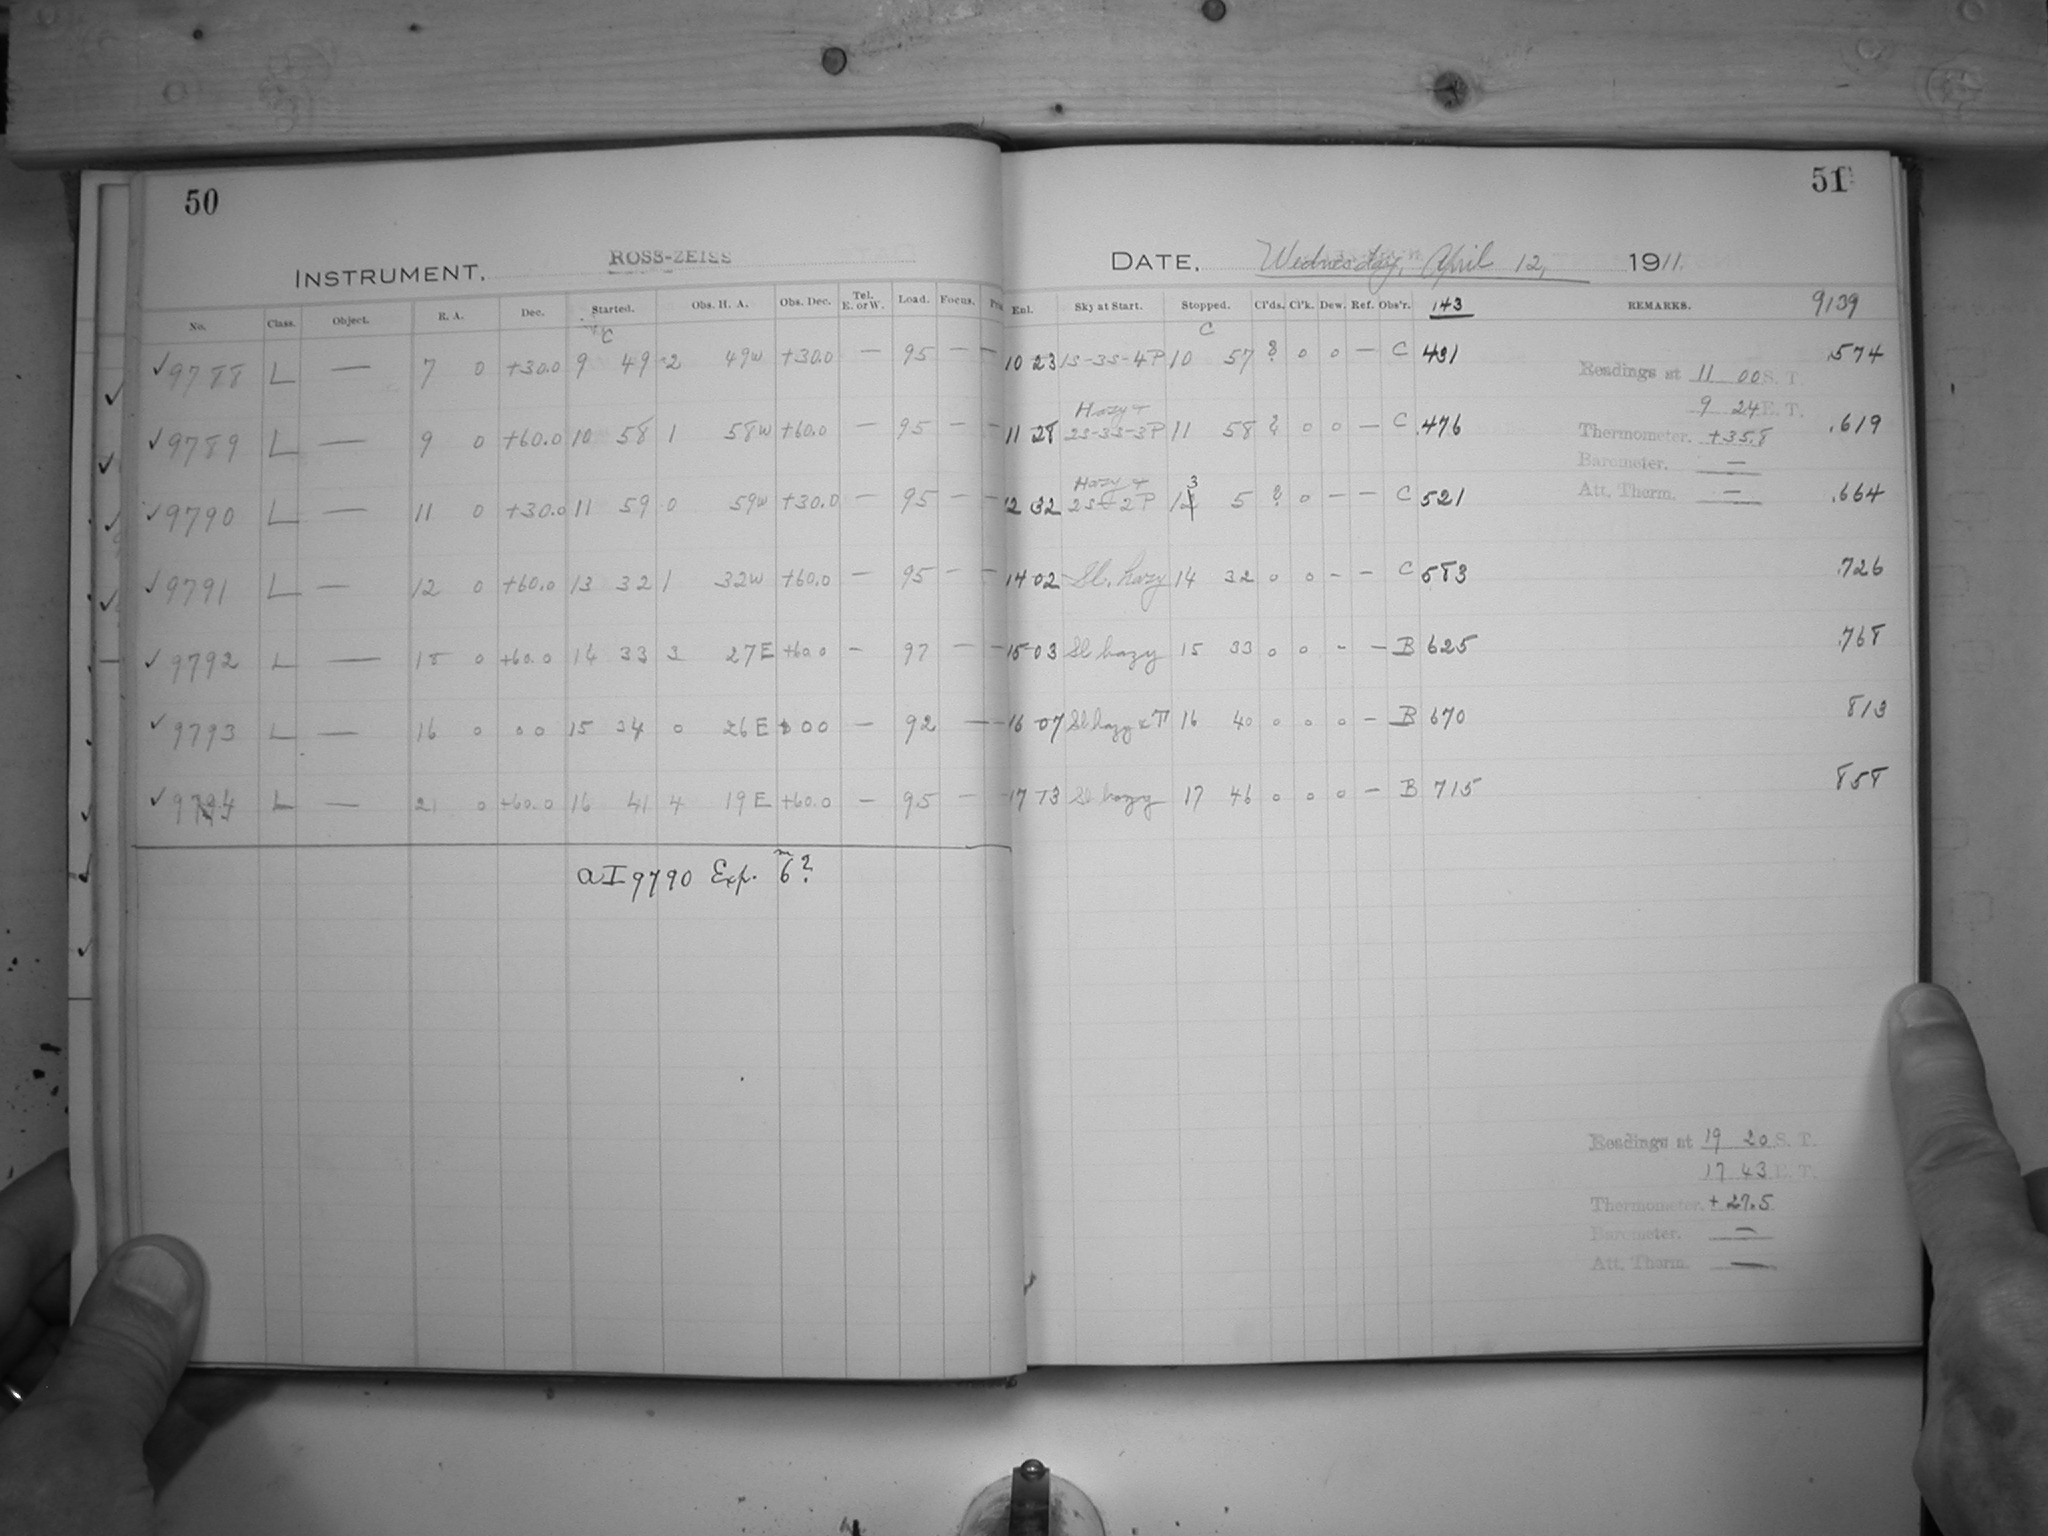 50
INSTRUMENT. ROSS-ZEISS
No. Class. Object. R. A. Dec. Started. Obs. H. A. Obs. Dec. Tel. E. or W. Load. Focus.
C
✓ 9788 L — 7 0 +30.0 9 49 2 49w +30.0 — 95 — —
✓ 9789 L — 9 0 +60.0 10 58 1 58w +60.0 — 95 — —
✓ 9790 L — 11 0 +30.0 11 59 0 59w +30.0 — 95 — —
✓ 9791 L — 12 0 +60.0 13 32 1 32w +60.0 — 95 — —
✓ 9792 L — 18 0 +60.0 14 33 3 27E +60.0 — 97 — —
✓ 9793 L — 16 0 0 0 15 34 0 26E 0 0 0 — 92 — —
✓ 9794 L — 21 0 +60.0 16 41 4 19E +60.0 — 95 — —
aI 9790 Exp. 6m?
51
DATE, Wednesday, April 12, 1911.
Enl. Sky at Start. Stopped. Cl'ds. Cl'k. Dew. Ref. Obs'r. 143 REMARKS. 9139
C
10 23 1S-3S-4P 10 57 ? 0 0 — C 431 .574
Readings at 11 00 S. T.
9 24 E. T.
Hazy +
11 28 2S-3S-3P 11 58 ? 0 0 — C .476 .619
Thermometer. +35.8
Barometer. —
Hazy + 3
12 32 2S 2P 12 5 ? 0 — — C 521 .664
Att. Therm. —
14 02 Sl. hazy 14 32 0 0 — — C 583 .726
15 03 Sl hazy 15 33 0 0 - — B 625 .768
16 07 Sl hazy 16 40 0 0 0 — B 670 813
17 13 Sl hazy 17 46 0 0 0 — B 715 858
Readings at 19 20 S. T.
17 43 E. T.
Thermometer. +27.5
Barometer. —
Att. Therm. —